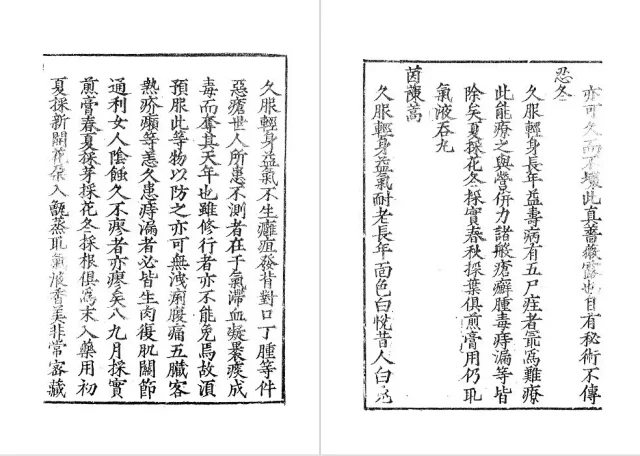 久服輕身益氣不生癰疽發背對口丁腫等件
惡瘡世人所患不測者在于氣滯血凝累疾成
毒而奪其天年也雖修行者亦不能免焉故須
預服此等物以防之亦可無洩痢腹痛五臟客
熱疥癩等恙久患痔漏者必皆生肉復肌關節
通利女人陰蝕久不瘳者亦瘳矣八九月採實
煎膏春夏採芽採花冬採根俱為末入藥用初
夏採新開花朶入甑蒸取氣液香美非常密藏
亦可久而不壞此真薔薇露也自有秘術不傳
忍冬
久服輕身長年益壽病有五尸疰者最為難療
此能療之與營併力諸般瘡癬腫毒痔漏等皆
除矣夏採花冬採實春秋採葉俱煎膏用仍取
氣液吞丸
茵蔯蒿
久服輕身益氣耐老長年面色白悅昔人白兔